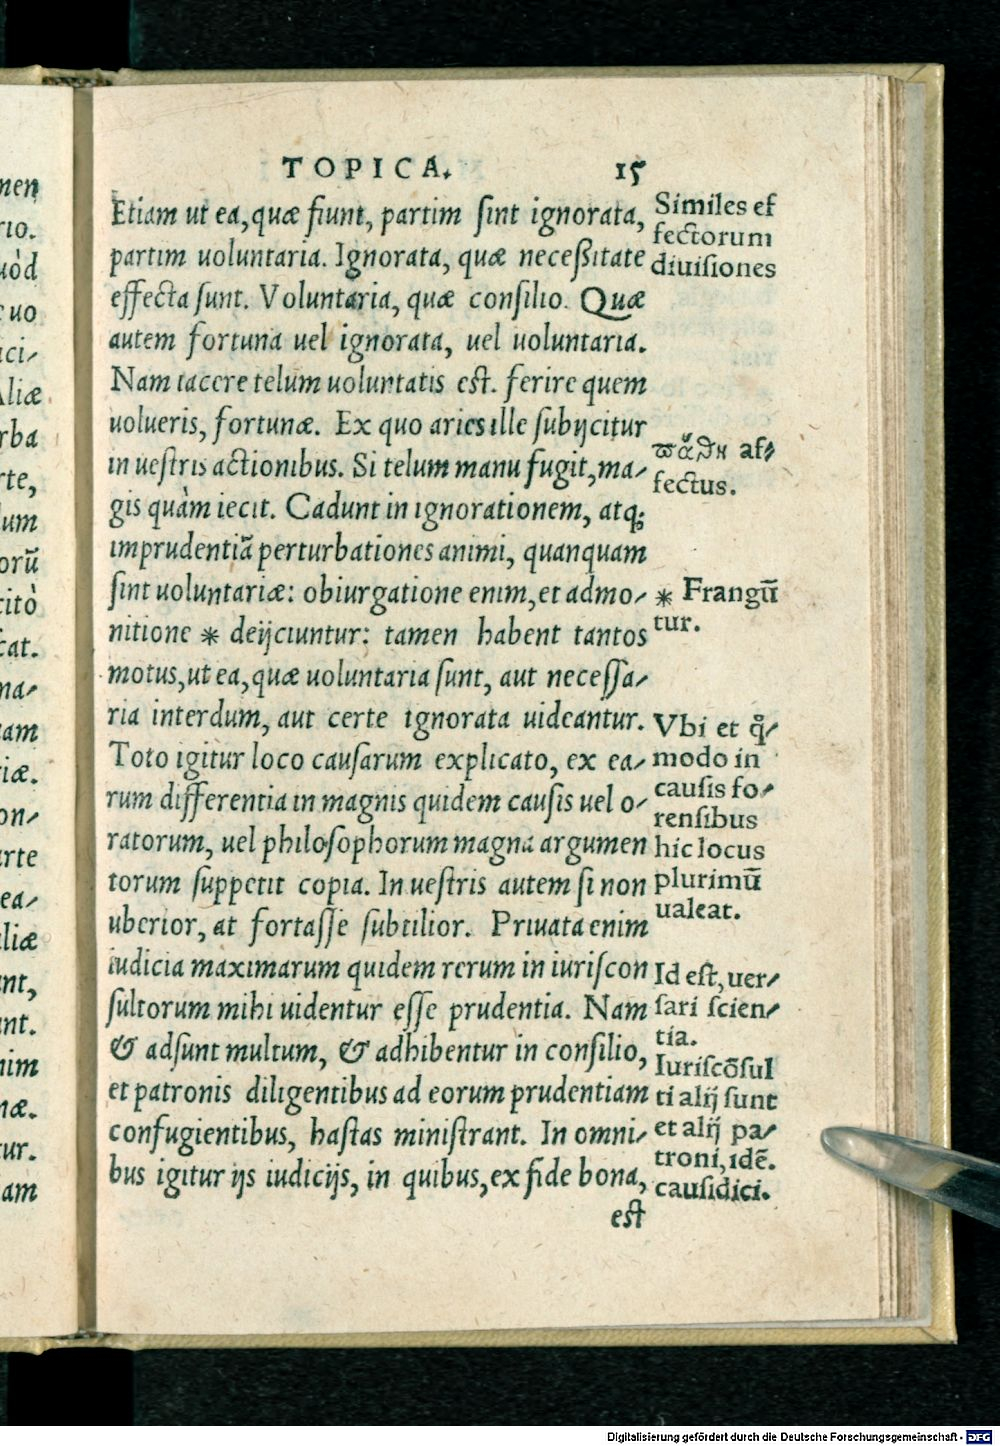 TOPICA. 15
Etiam ut ea, quæ fiunt, partim ſint ignorata,
partim uoluntaria. Ignorata, quæ neceſsitate
effecta ſunt. Voluntaria, quæ conſilio. Quæ
autem fortuna uel ignorata, uel uoluntaria.
Nam iacere telum uoluntatis eſt. ferire quem
uolueris, fortunæ. Ex quo aries ille ſubijcitur
in ueſtris actionibus. Si telum manu fugit, ma-
gis quàm iecit. Cadunt in ignorationem, atq;
imprudentiã perturbationes animi, quanquam
ſint uoluntariæ: obiurgatione enim, et admo-
nitione * deijciuntur: tamen habent tantos
motus, ut ea, quæ uoluntaria ſunt, aut neceſſa-
ria interdum, aut certe ignorata uideantur.
Toto igitur loco cauſarum explicato, ex ea-
rum differentia in magnis quidem cauſis uel o-
ratorum, uel philoſophorum magna argumen
torum ſuppetit copia. In ueſtris autem ſi non
uberior, at fortaſſe ſubtilior. Priuata enim
iudicia maximarum quidem rerum in iuriſcon
ſultorum mihi uidentur eſſe prudentia. Nam
& adſunt multum, & adhibentur in conſilio,
et patronis diligentibus ad eorum prudentiam
confugientibus, haſtas miniſtrant. In omni-
bus igitur ijs iudicijs, in quibus, ex fide bona,
eſt
Similes ef
fectorum
diuiſiones
af-
fectus.
* Frangũ
tur.
Vbi et q̊-
modo in
cauſis fo-
renſibus
hic locus
plurimũ
ualeat.
Id eſt, uer-
ſari ſcien-
tia.
Iuriſcõſul
ti alij ſunt
et alij pa-
troni, idẽ.
cauſidici.
nen
rio.
uòd
uo
ici-
Aliæ
rba
rte,
lum
orũ
citò
cat.
na-
am
iæ.
on-
arte
ea-
liæ
nt,
nt.
nim
næ.
tur.
am
Digitalisierung gefördert durch die Deutsche Forschungsgemeinschaft - DFG